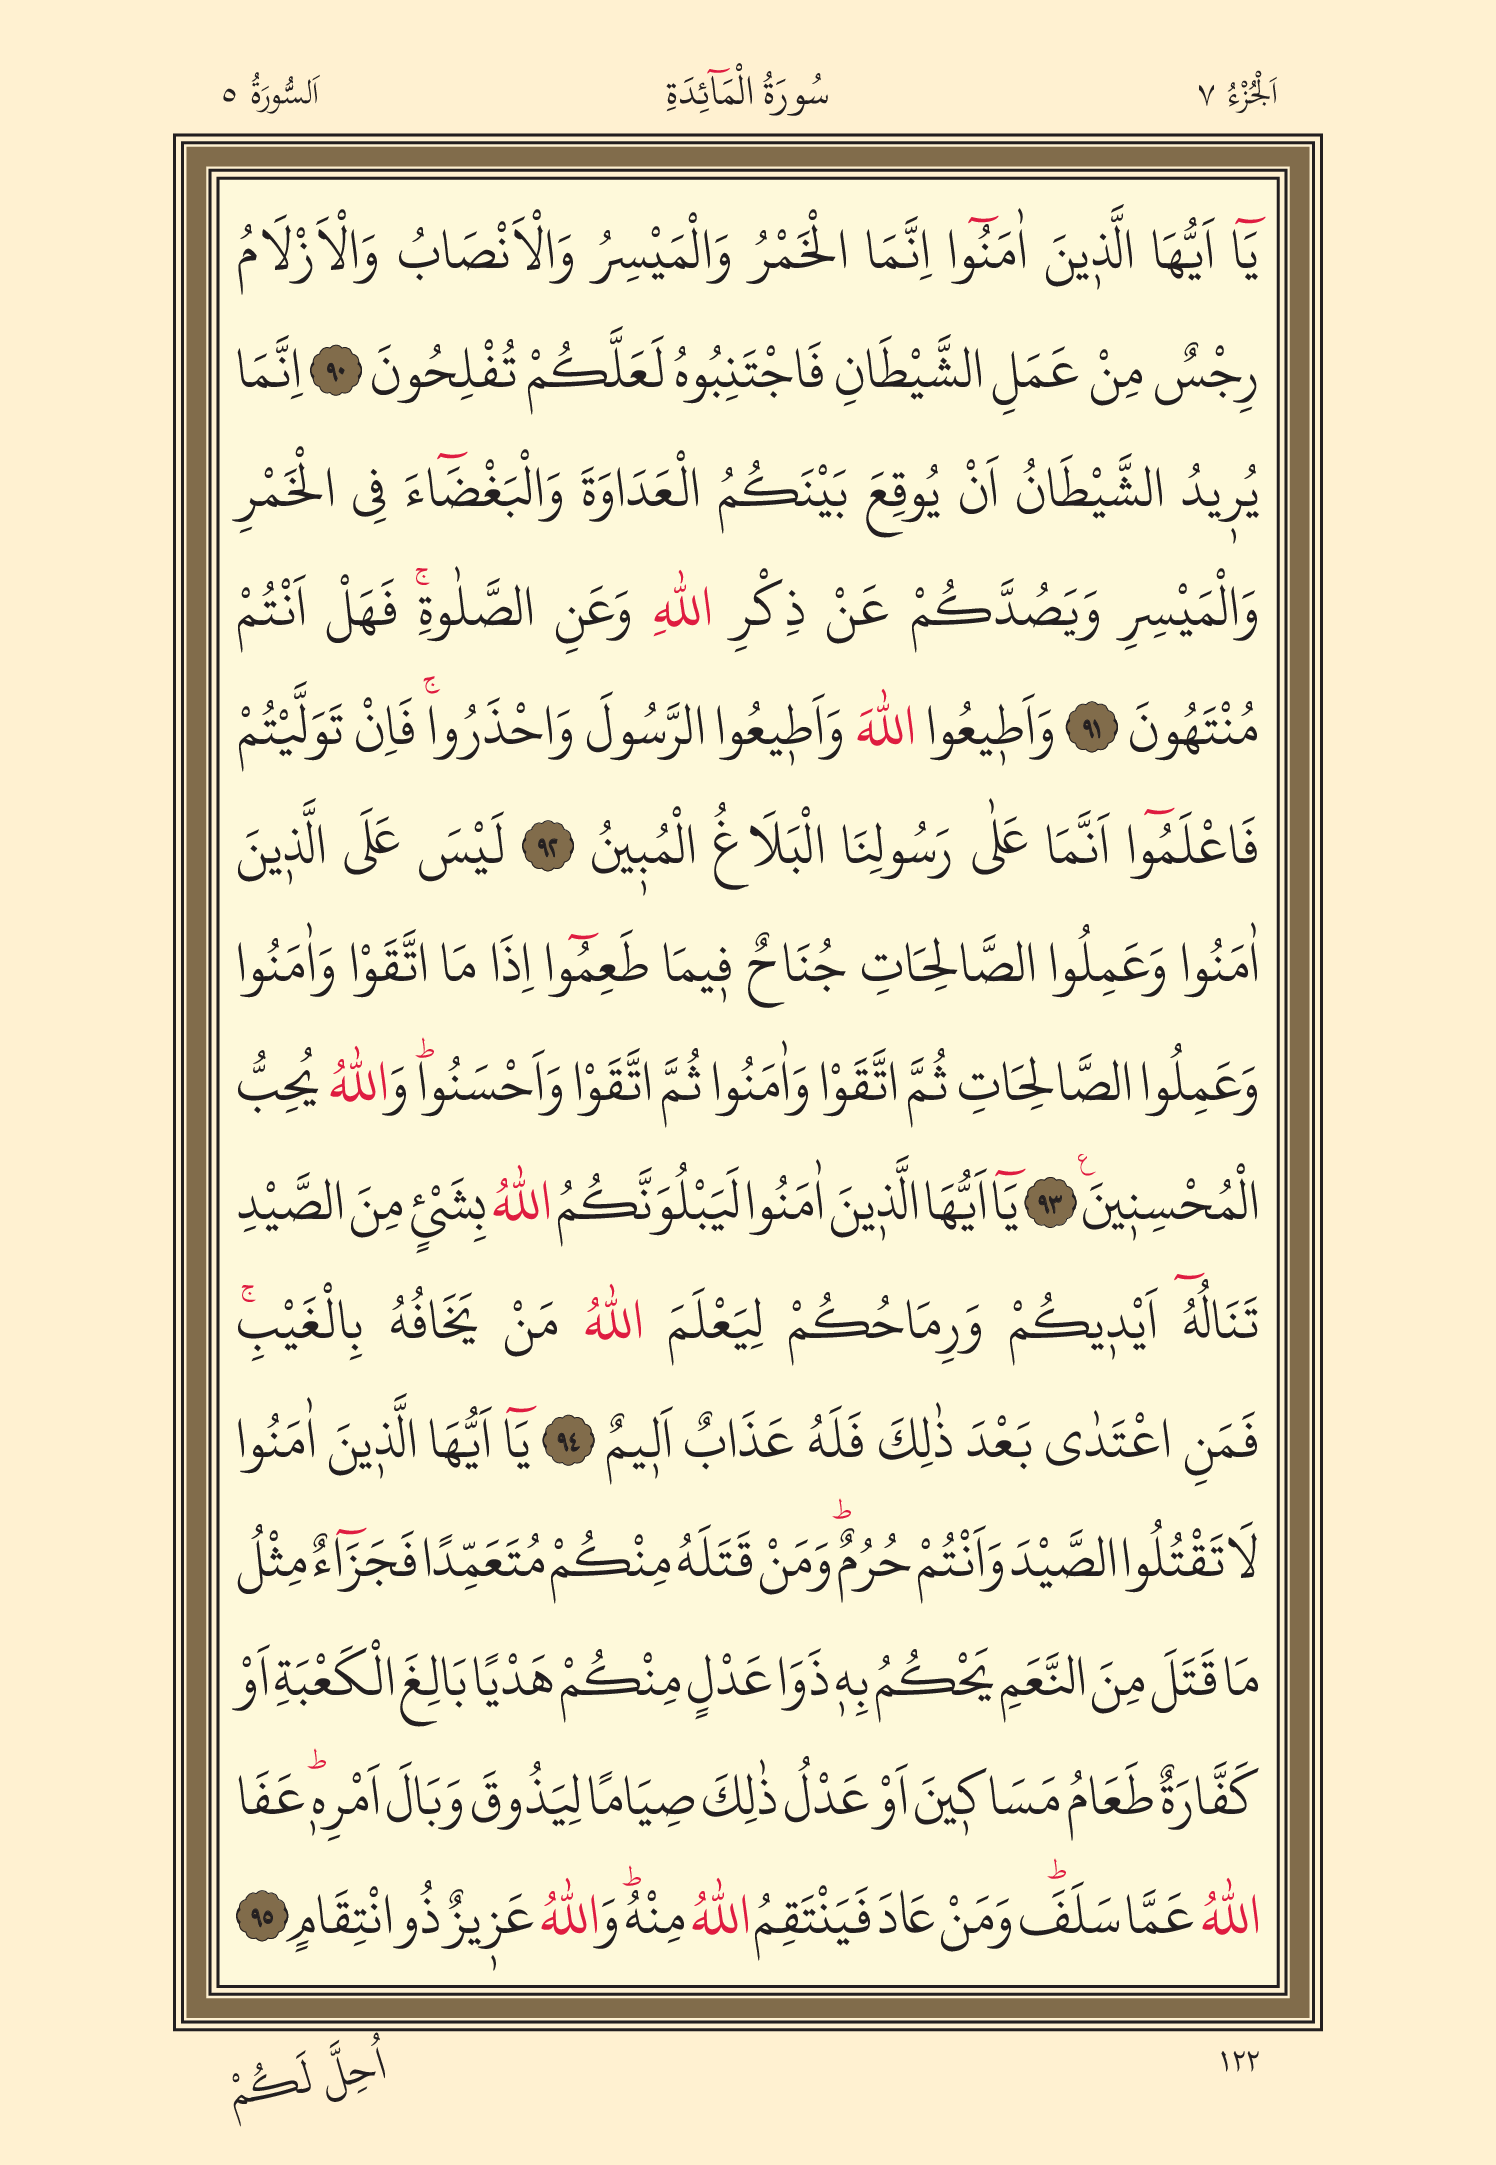 اَلْجُزْءُ ٧ سُورَةُ الْمَآئِدَةِ اَلسُّورَةُ ٥
يَٓا اَيُّهَا الَّذ۪ينَ اٰمَنُٓوا اِنَّمَا الْخَمْرُ وَالْمَيْسِرُ وَالْاَنْصَابُ وَالْاَزْلَامُ
رِجْسٌ مِنْ عَمَلِ الشَّيْطَانِ فَاجْتَنِبُوهُ لَعَلَّكُمْ تُفْلِحُونَ ﴿٩٠﴾ اِنَّمَا
يُر۪يدُ الشَّيْطَانُ اَنْ يُوقِعَ بَيْنَكُمُ الْعَدَاوَةَ وَالْبَغْضَٓاءَ فِي الْخَمْرِ
وَالْمَيْسِرِ وَيَصُدَّكُمْ عَنْ ذِكْرِ اللّٰهِ وَعَنِ الصَّلٰوةِۚ فَهَلْ اَنْتُمْ
مُنْتَهُونَ ﴿٩١﴾ وَاَط۪يعُوا اللّٰهَ وَاَط۪يعُوا الرَّسُولَ وَاحْذَرُواۚ فَاِنْ تَوَلَّيْتُمْ
فَاعْلَمُٓوا اَنَّمَا عَلٰى رَسُولِنَا الْبَلَاغُ الْمُب۪ينُ ﴿٩٢﴾ لَيْسَ عَلَى الَّذ۪ينَ
اٰمَنُوا وَعَمِلُوا الصَّالِحَاتِ جُنَاحٌ ف۪يمَا طَعِمُٓوا اِذَا مَا اتَّقَوْا وَاٰمَنُوا
وَعَمِلُوا الصَّالِحَاتِ ثُمَّ اتَّقَوْا وَاٰمَنُوا ثُمَّ اتَّقَوْا وَاَحْسَنُواۜ وَاللّٰهُ يُحِبُّ
الْمُحْسِن۪ينَ۟ ﴿٩٣﴾ يَٓا اَيُّهَا الَّذ۪ينَ اٰمَنُوا لَيَبْلُوَنَّكُمُ اللّٰهُ بِشَيْءٍ مِنَ الصَّيْدِ
تَنَالُهُٓ اَيْد۪يكُمْ وَرِمَاحُكُمْ لِيَعْلَمَ اللّٰهُ مَنْ يَخَافُهُ بِالْغَيْبِۚ
فَمَنِ اعْتَدٰى بَعْدَ ذٰلِكَ فَلَهُ عَذَابٌ اَل۪يمٌ ﴿٩٤﴾ يَٓا اَيُّهَا الَّذ۪ينَ اٰمَنُوا
لَا تَقْتُلُوا الصَّيْدَ وَاَنْتُمْ حُرُمٌۜ وَمَنْ قَتَلَهُ مِنْكُمْ مُتَعَمِّدًا فَجَزَٓاءٌ مِثْلُ
مَا قَتَلَ مِنَ النَّعَمِ يَحْكُمُ بِه۪ ذَوَا عَدْلٍ مِنْكُمْ هَدْيًا بَالِغَ الْكَعْبَةِ اَوْ
كَفَّارَةٌ طَعَامُ مَسَاك۪ينَ اَوْ عَدْلُ ذٰلِكَ صِيَامًا لِيَذُوقَ وَبَالَ اَمْرِه۪ۜ عَفَا
اللّٰهُ عَمَّا سَلَفَۜ وَمَنْ عَادَ فَيَنْتَقِمُ اللّٰهُ مِنْهُۜ وَاللّٰهُ عَز۪يزٌ ذُو انْتِقَامٍ ﴿٩٥﴾
١٢٢ اُحِلَّ لَكُمْ